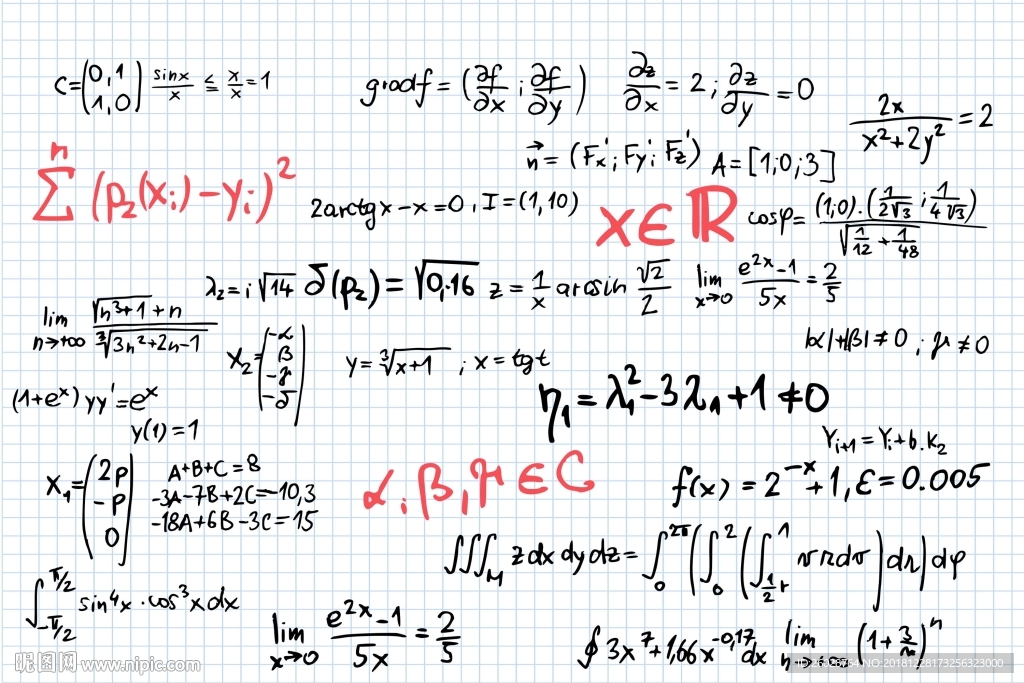 C=(0,1 1,0) sinx/x ≤ x/x=1
gradf=(∂f/∂x ; ∂f/∂y)
∂z/∂x=2 ; ∂z/∂y=0
2x/(x²+2y²)=2
n⃗=(Fx'; Fy'; Fz')
A=[1;0;3]
∑ⁿ(p₂(xᵢ)-yᵢ)²
2arctgx-x=0, I=(1,10)
X∈ℝ
cosφ=(1,0).(1/(2√3) ; 1/(4√3))/√(1/12+1/48)
λ₂=i√14
δ(p₂)=√0,16
z=1/x arcsin √2/2
lim x→0 (e^(2x)-1)/5x=2/5
lim n→+∞ (√(n³+1)+n)/∛(3n²+2n-1)
X₂=(-α β -γ -δ)
y=∛(x+1) ; x=tgt
|α|+|β|≠0 ; γ≠0
(1+eˣ)yy'=eˣ
y(1)=1
η₁=λ₁²-3λ₁+1≠0
Yᵢ₊₁=Yᵢ+b.k₂
X₁=(2p -p 0)
A+B+C=8
-3A-7B+2C=-10,3
-18A+6B-3C=15
α, β, γ∈C
f(x)=2⁻ˣ+1, ε=0.005
∭_M zdxdydz=∫₀^(2π)(∫₀²(∫_(½r)¹ vrdv)dr)dφ
∫_(-π/2)^(π/2) sin⁴x·cos³xdx
lim x→0 (e^(2x)-1)/5x=2/5
∮3x⁷+1,66x^(-0,17)dx
lim n→+∞ (1+3/n)ⁿ
昵图网 www.nipic.com
NO:20181228173256323000